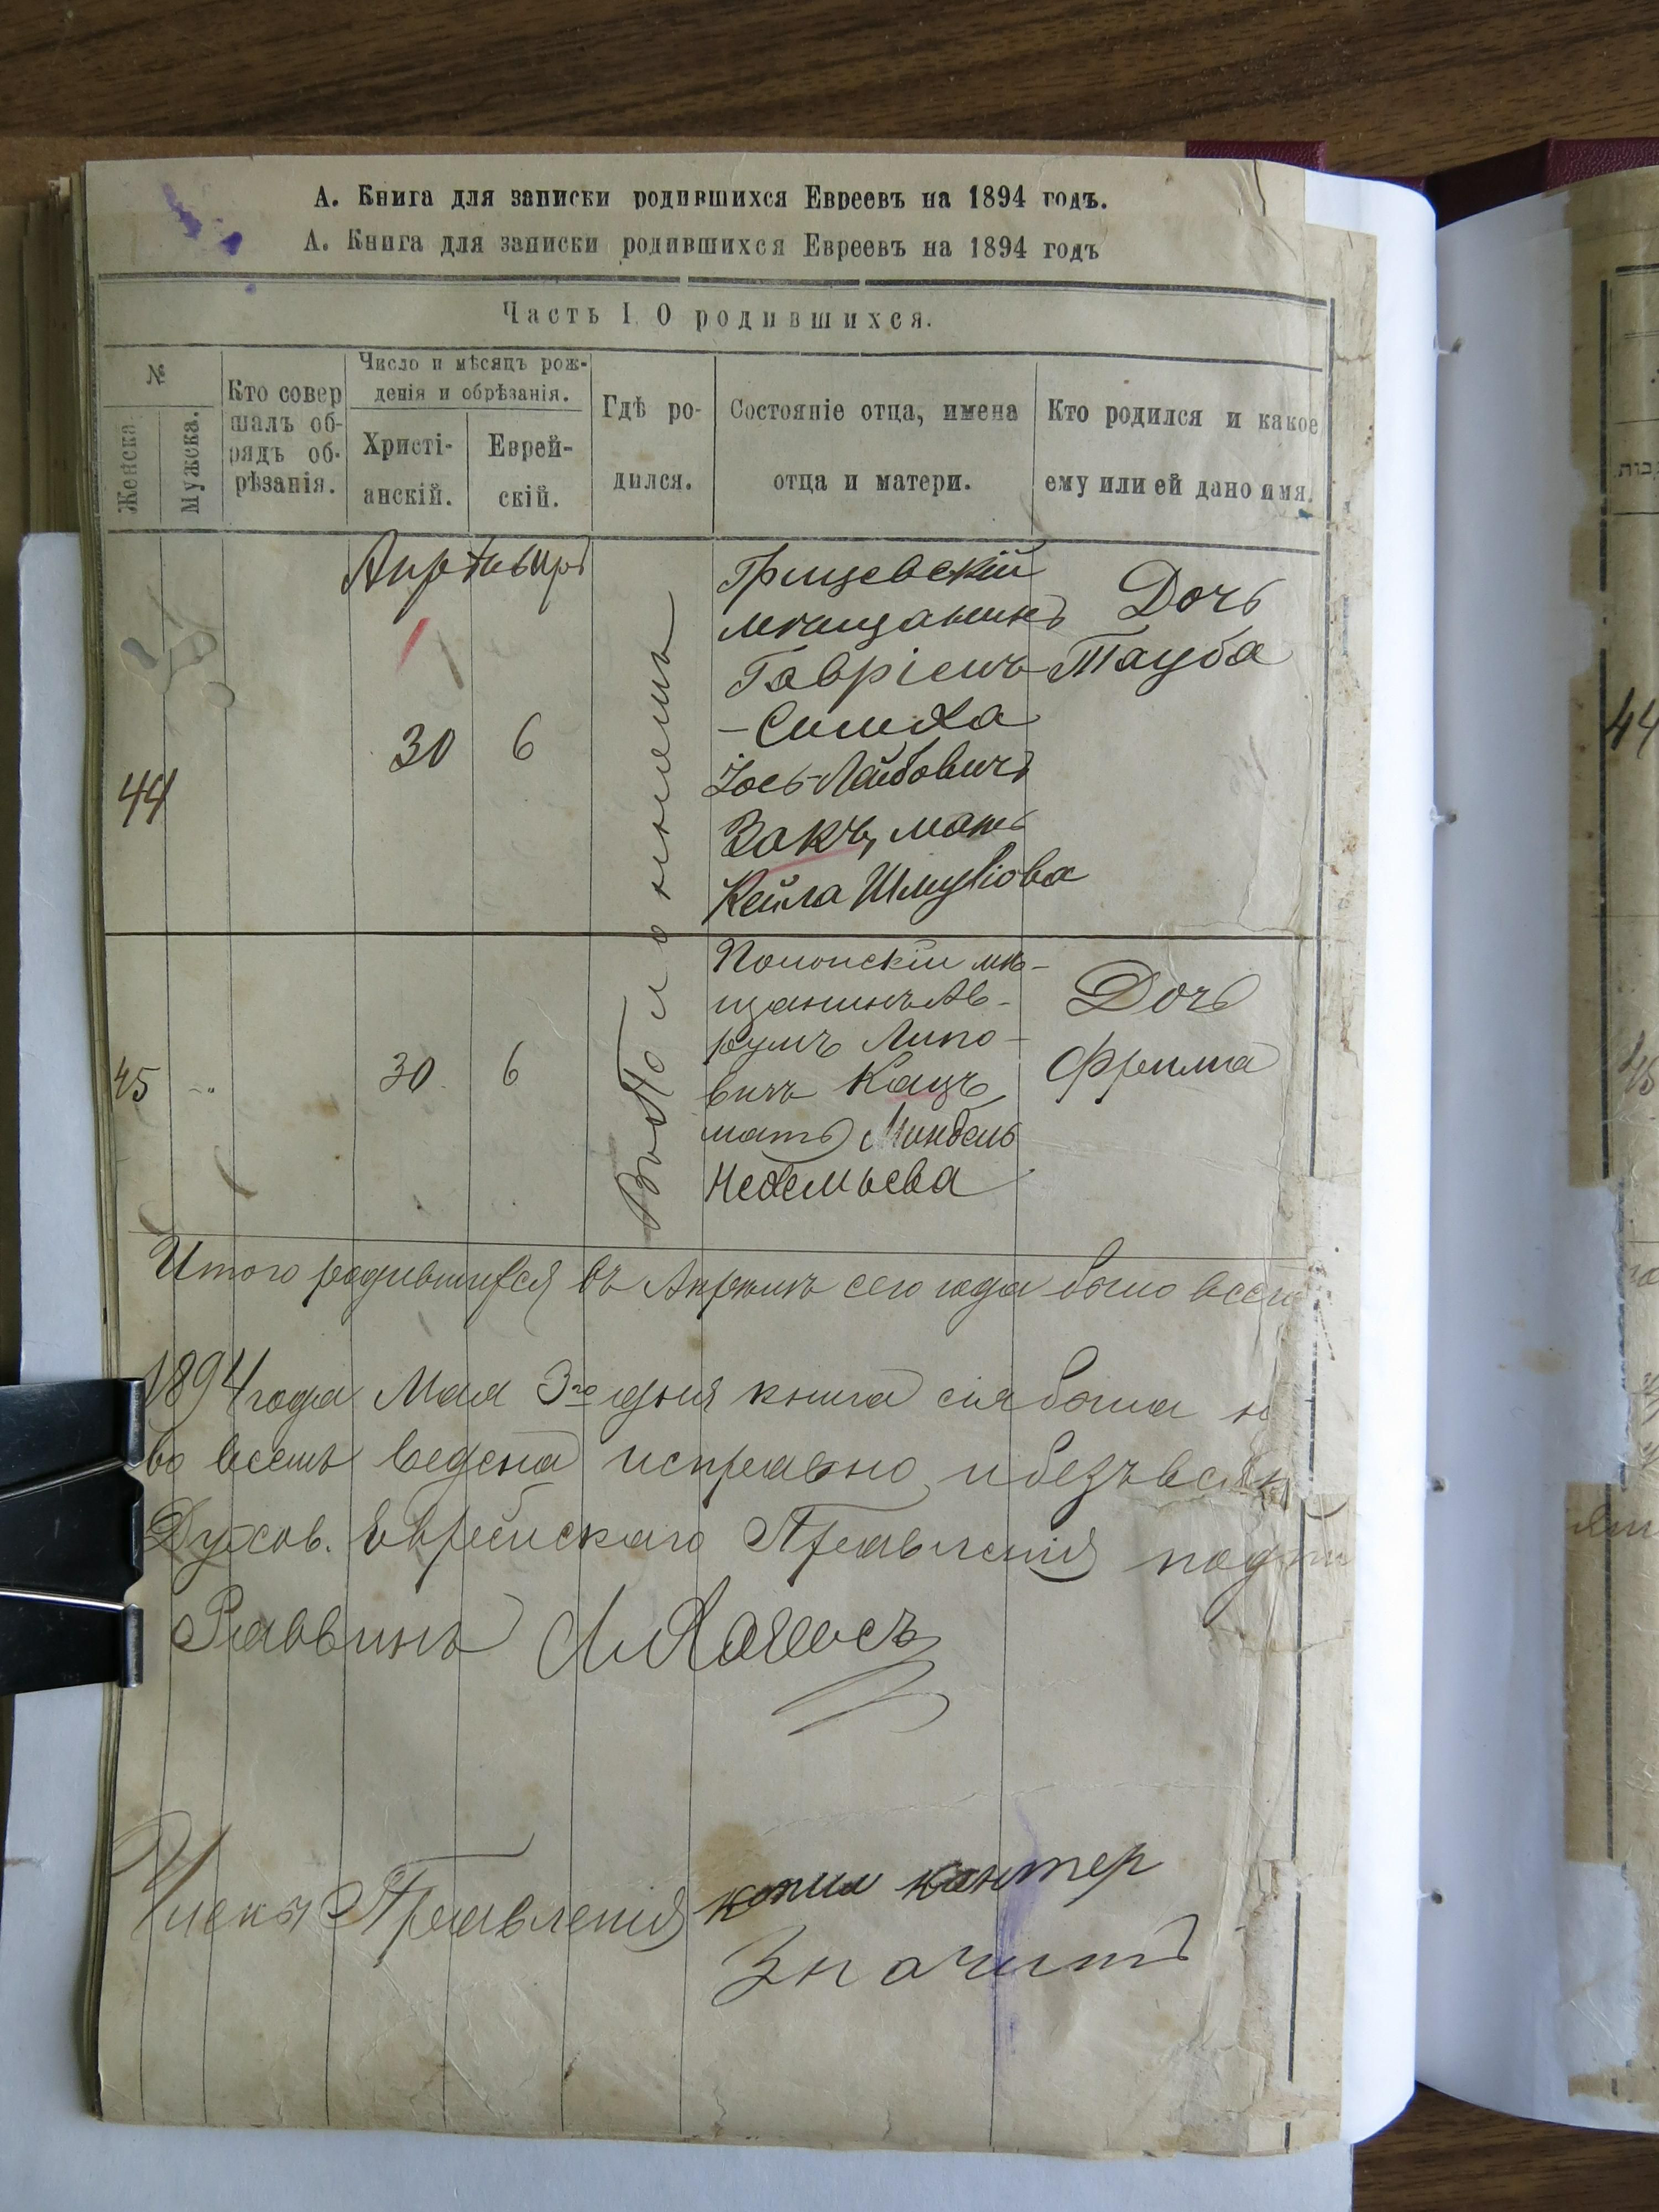 А. Книга для записки родившихся Евреевъ на 1894 годъ.
А. Книга для записки родившихся Евреевъ на 1894 годъ
Часть I. О родившихся.
№
Женска.
Мужска.
Кто совер
шалъ об-
рядъ об-
рѣзанія.
Число и мѣсяцъ рож-
денія и обрѣзанія.
Христі-
анскій.
Еврей-
скій.
Гдѣ ро-
дился.
Состояніе отца, имена
отца и матери.
Кто родился и какое
ему или ей дано имя.
44
30
6
Въ Полонномъ
Грицевскій
мѣщанинъ
Гавріель
-Симха
Іось-Лейбовичъ
Закъ, мать
Кейла Шмулiова
Дочь
Тауба
45
30
6
Полонскій мѣ-
щанинъ Ав-
румъ Липо-
вичъ Кацъ
мать Миндель
Нехемьева
Дочь
Фрима
Итого родившихся въ Апрѣлѣ сего года было всего
1894 года Мая 3го дня книга сія была
во всемъ ведена исправно и безъ
Духов. Еврейскаго Правленія
Раввинъ
Члены Правленія копил кантер
Значитъ
44
45